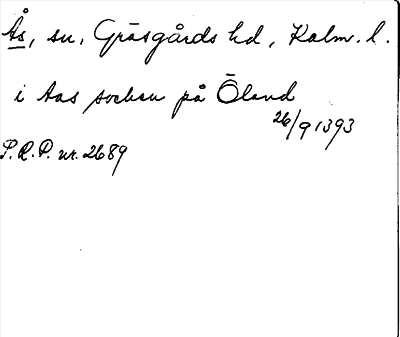 Ås, sn, Gräsgårds hd, Kalm. l.
i Aas socken på Öland
26/9 1393
S.R.P. nr. 2689